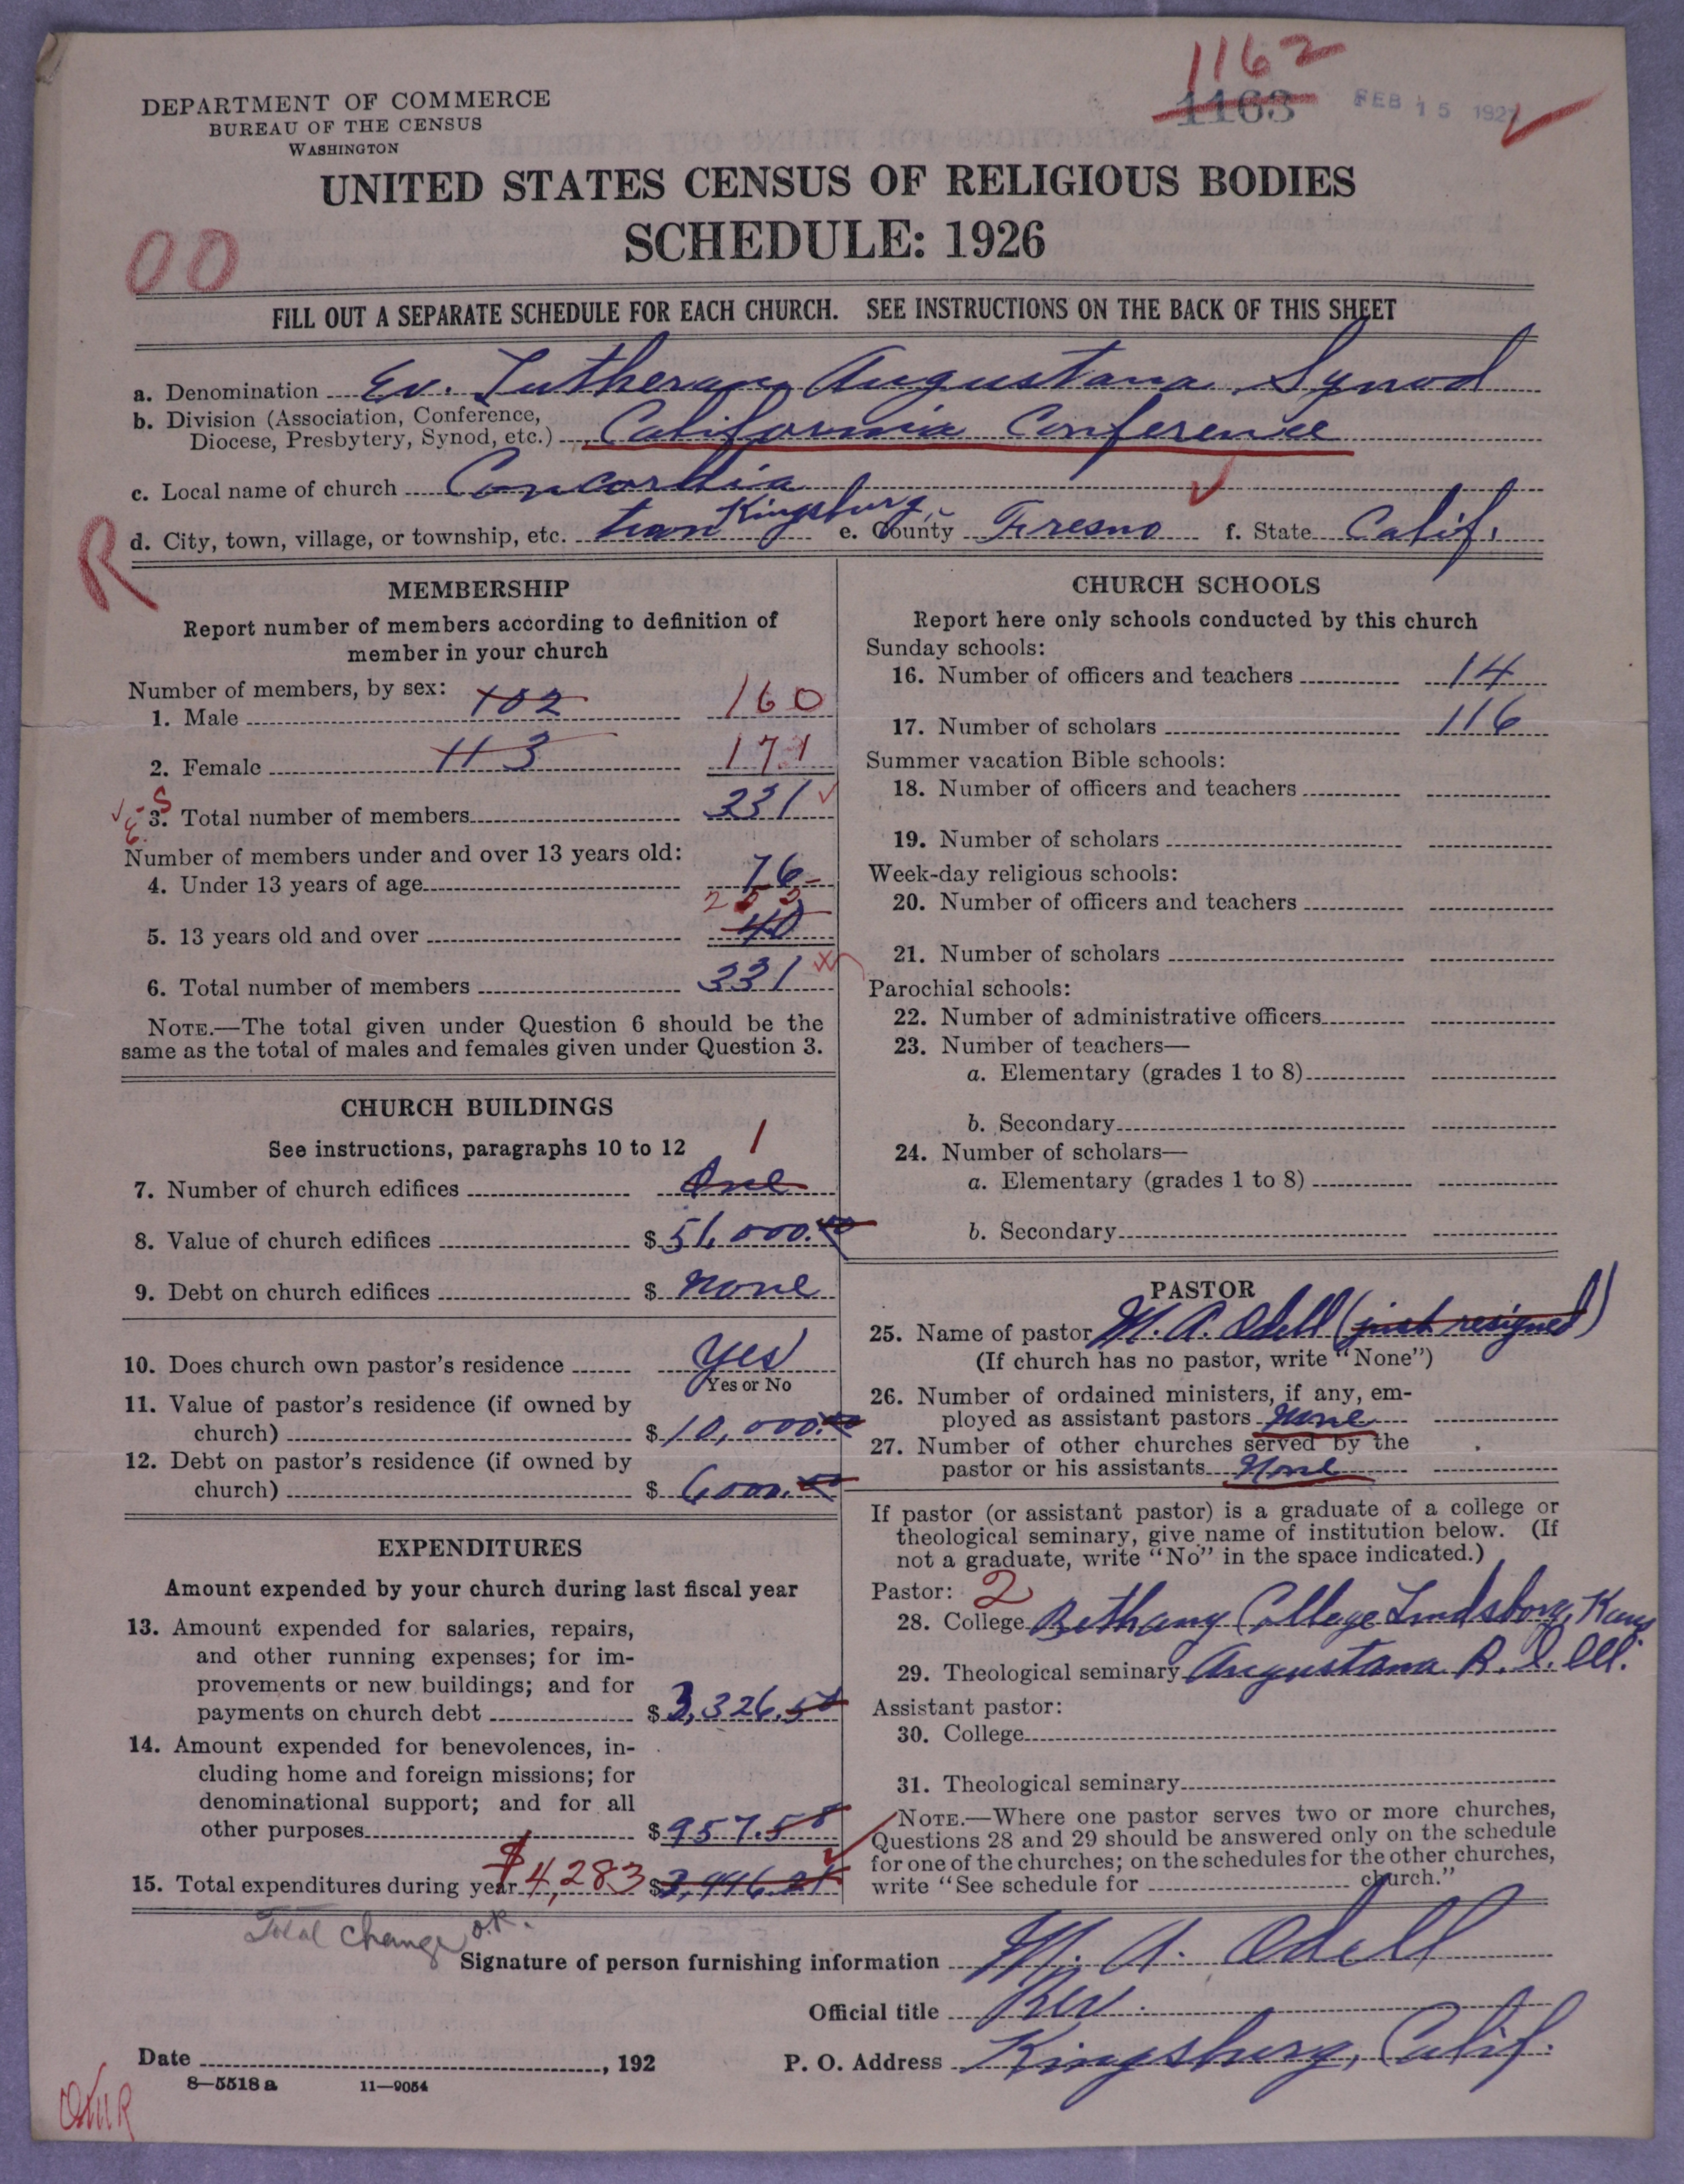 1162
1163 FEB 15 192
DEPARTMENT OF COMMERCE
BUREAU OF THE CENSUS
WASHINGTON
UNITED STATES CENSUS OF RELIGIOUS BODIES
SCHEDULE: 1926
00
FILL OUT A SEPARATE SCHEDULE FOR EACH CHURCH. SEE INSTRUCTIONS ON THE BACK OF THIS SHEET
a. Denomination Ev. Lutheran Augustana Synod
b. Division (Association, Conference,
Diocese, Presbytery, Synod, etc.) California Conference
c. Local name of church Concordia
R
d. City, town, village, or township, etc. town Kingsburg, e. County Fresno f. State Calif.
MEMBERSHIP
Report number of members according to definition of
member in your church
Number of members, by sex:
1. Male 102 160
2. Female 113 171
S
3. Total number of members 331
Number of members under and over 13 years old:
4. Under 13 years of age 76
5. 13 years old and over 40
6. Total number of members 331
NOTE.—The total given under Question 6 should be the
same as the total of males and females given under Question 3.
CHURCH BUILDINGS
See instructions, paragraphs 10 to 12
1
7. Number of church edifices One
8. Value of church edifices $ 51,000.00
9. Debt on church edifices $ none
10. Does church own pastor's residence yes
Yes or No
11. Value of pastor's residence (if owned by
church) $ 10,000.00
12. Debt on pastor's residence (if owned by
church) $ 6000.00
EXPENDITURES
Amount expended by your church during last fiscal year
13. Amount expended for salaries, repairs,
and other running expenses; for im-
provements or new buildings; and for
payments on church debt $ 3,326.50
14. Amount expended for benevolences, in-
cluding home and foreign missions; for
denominational support; and for all
other purposes $ 957.58
15. Total expenditures during year $4,283 $
CHURCH SCHOOLS
Report here only schools conducted by this church
Sunday schools:
16. Number of officers and teachers 14
17. Number of scholars 116
Summer vacation Bible schools:
18. Number of officers and teachers
19. Number of scholars
Week-day religious schools:
20. Number of officers and teachers
21. Number of scholars
Parochial schools:
22. Number of administrative officers
23. Number of teachers—
a. Elementary (grades 1 to 8)
b. Secondary
24. Number of scholars—
a. Elementary (grades 1 to 8)
b. Secondary
PASTOR
25. Name of pastor M. A. Odell (just resigned)
(If church has no pastor, write "None")
26. Number of ordained ministers, if any, em-
ployed as assistant pastors none
27. Number of other churches served by the
pastor or his assistants None
If pastor (or assistant pastor) is a graduate of a college or
theological seminary, give name of institution below. (If
not a graduate, write "No" in the space indicated.)
Pastor: 2
28. College Bethany College Lindsborg, Kans
29. Theological seminary Augustana R. I. Ill.
Assistant pastor:
30. College
31. Theological seminary
NOTE.—Where one pastor serves two or more churches,
Questions 28 and 29 should be answered only on the schedule
for one of the churches; on the schedules for the other churches,
write "See schedule for church."
Total change o.k.
Signature of person furnishing information M. A. Odell
Official title Rev.
Date , 192 P. O. Address Kingsburg, Calif.
8—5518 a 11—9054